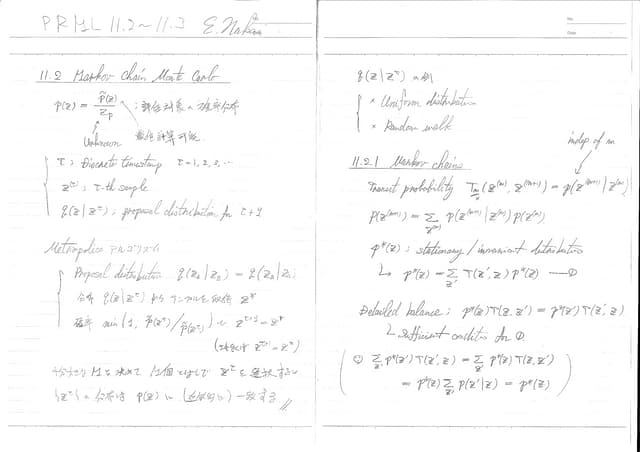 PRML 11.2~11.3 E. Nakai
No.
Date
11.2 Markov Chain Monte Carlo
p(z) = p̃(z)/Z_p : 評価対象の確率分布
Unknown 数値計算可能
τ : Discrete timestamp τ=1,2,3,...
z^(τ) : τ-th sample
q(z|z^(τ)) : proposal distribution for τ+1
Metropolice アルゴリズム
Proposal distribution q(z_A|z_B) = q(z_B|z_A)
分布 q(z|z^(τ)) から サンプルを取得 z*
確率 min(1, p̃(z*)/p̃(z^(τ))) で z^(τ+1) = z*
z^(τ+1) = z^(τ)
十分大きな M を決めて M個 z^(τ) を選択すると
{z^(τ)} の分布は p(z) に (近似的に) 一致する //
q(z|z^(τ)) の例
* Uniform distribution
* Random walk
indep. of m
11.2.1 Markov chains
Transit probability T_m(z^(m), z^(m+1)) = p(z^(m+1)|z^(m))
p(z^(m+1)) = Σ_{z^(m)} p(z^(m+1)|z^(m)) p(z^(m))
p*(z) : stationary / invariant distribution
↳ p*(z) = Σ_{z'} T(z', z) p*(z') — ①
Detailed balance : p*(z) T(z, z') = p*(z') T(z', z)
↳ Sufficient condition for ①
(∵ Σ_{z'} p*(z') T(z', z) = Σ_{z'} p*(z) T(z, z')
= p*(z) Σ_{z'} p(z'|z) = p*(z))